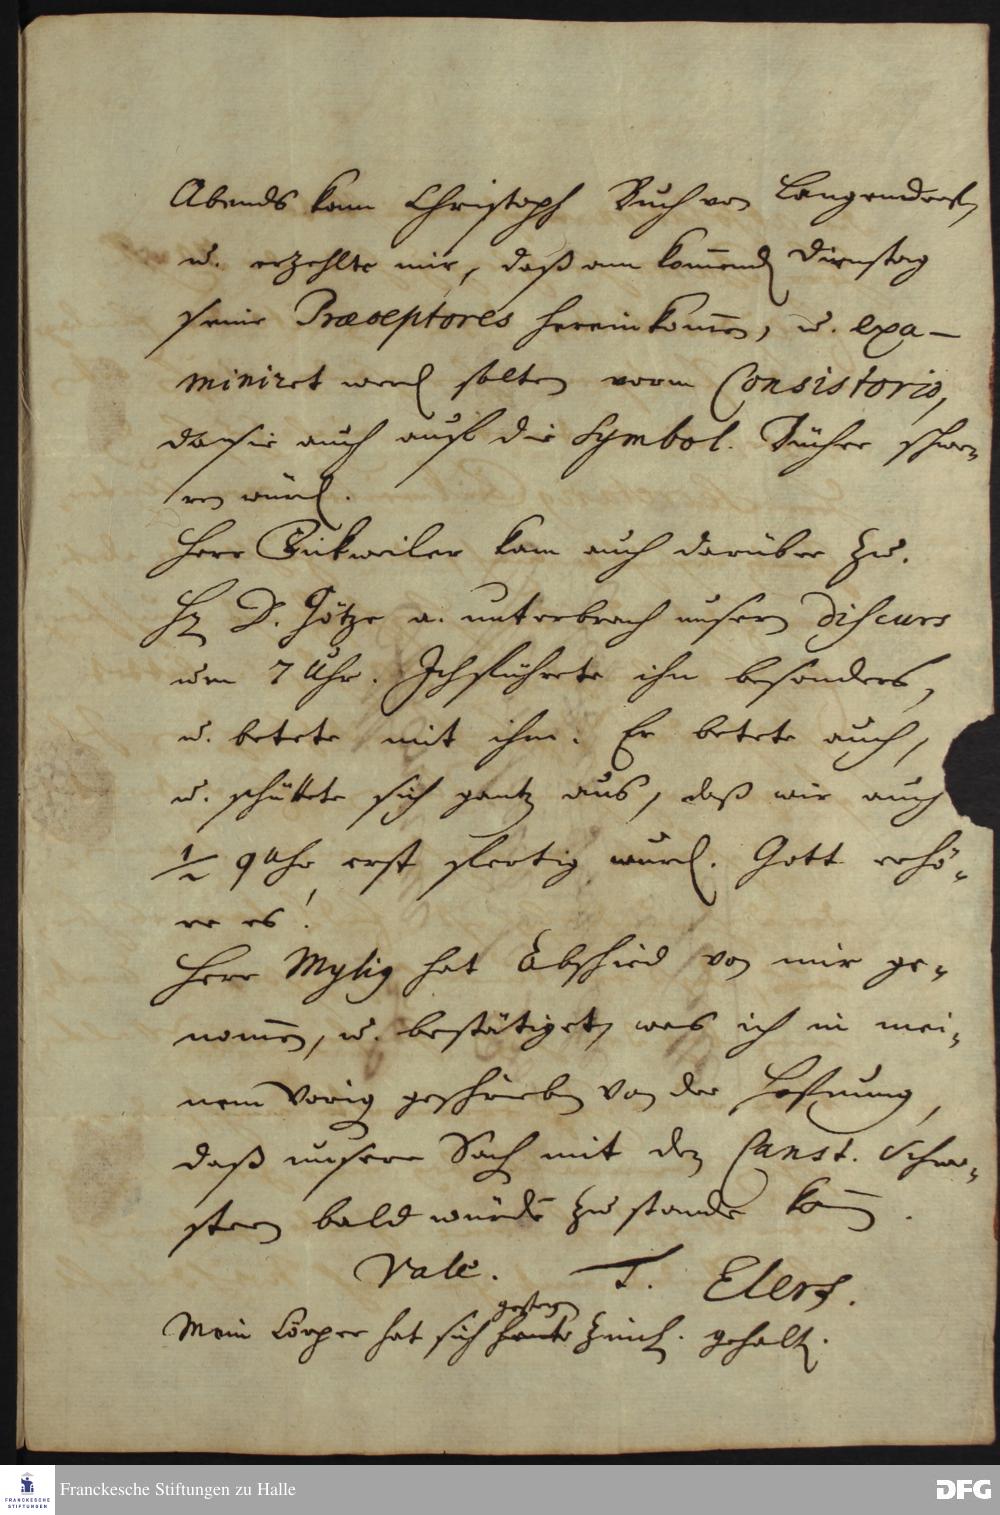 Abends kam Christoph Buch von Langendorff,
u. erzehlte mir, daß am kom̄end Dienstag
seine Præceptores hereinkom̄en, u. exa-
miniret werd solten vorm Consistorio,
da sie auch auf die Symbol. Bücher schwe-
ren würd.
Herr Birkweiler kam auch darüber zu.
H D. Götze a. unterbrach unsern Discurs
um 7 Uhr. Ich führete ihn besonders,
u. betete mit ihm. Er betete auch,
u. schüttete sich gantz aus, daß wir auch
1/2 9 Uhr erst fertig wurd. Gott erhö-
re es!
Herr Mylig hat Abschied von mir ge-
nom̄en, u. bestätiget, was ich in mei-
nem Vorig geschrieben von der Hofnung,
daß unsere Sach mit den Canst. Schwe-
stern bald würde zu stande kom̄.
Vale. T. Elers.
gestern
Mein Cörper hat sich heute zieml. gehalt.
Franckesche Stiftungen zu Halle
FRANCKESCHE
STIFTUNGEN
DFG